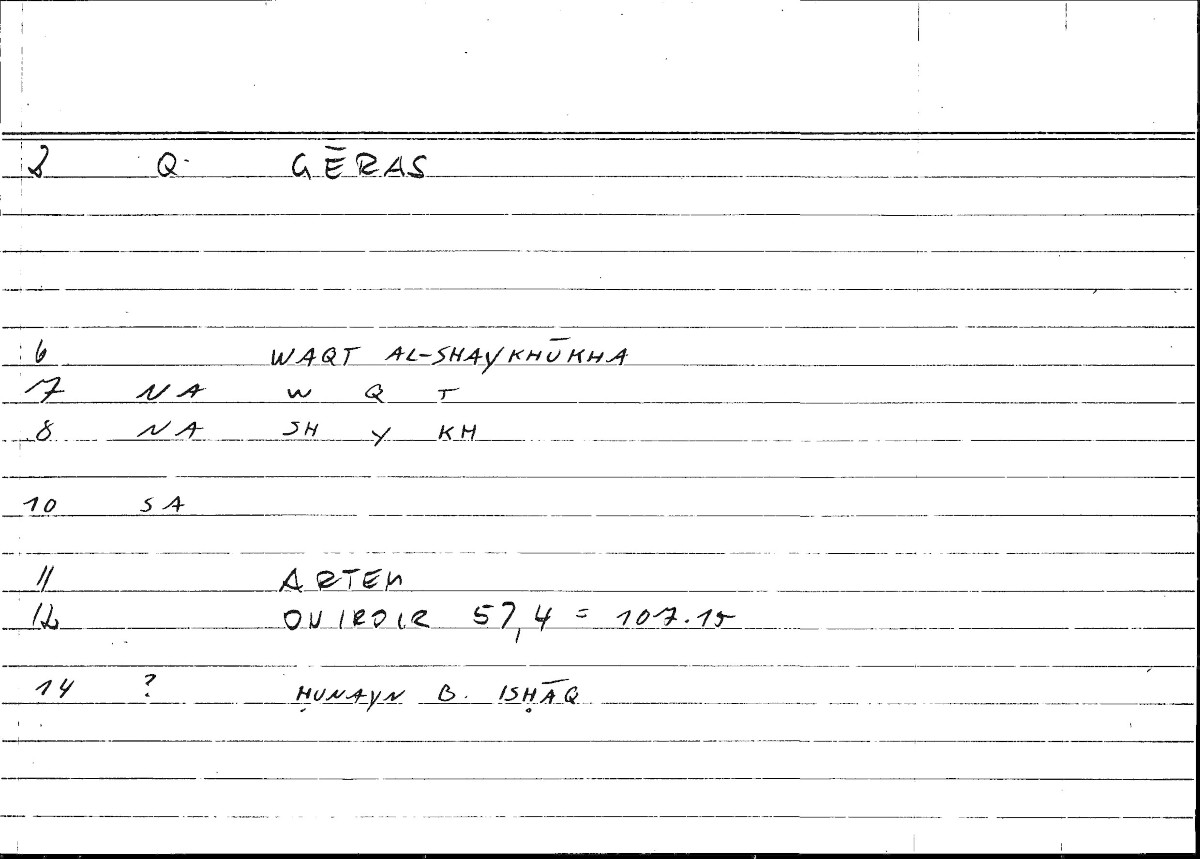 2 Q. GĒRAS
6 WAQT AL-SHAYKHŪKHA
7 NA W Q T
8 NA SH Y KH
10 SA
11 ARTEM
12 ONIRDIR 57,4 = 107.15
14 ? ḤUNAYN B. ISḤĀQ